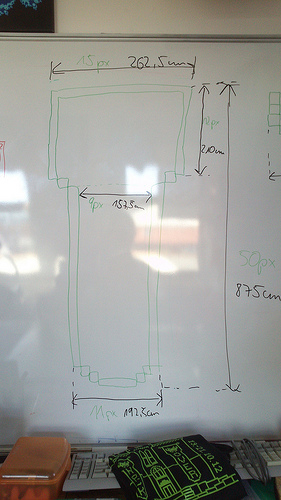 15px 262,5cm
12px
210cm
9px 157,5cm
50px
875cm
11px 192,5cm